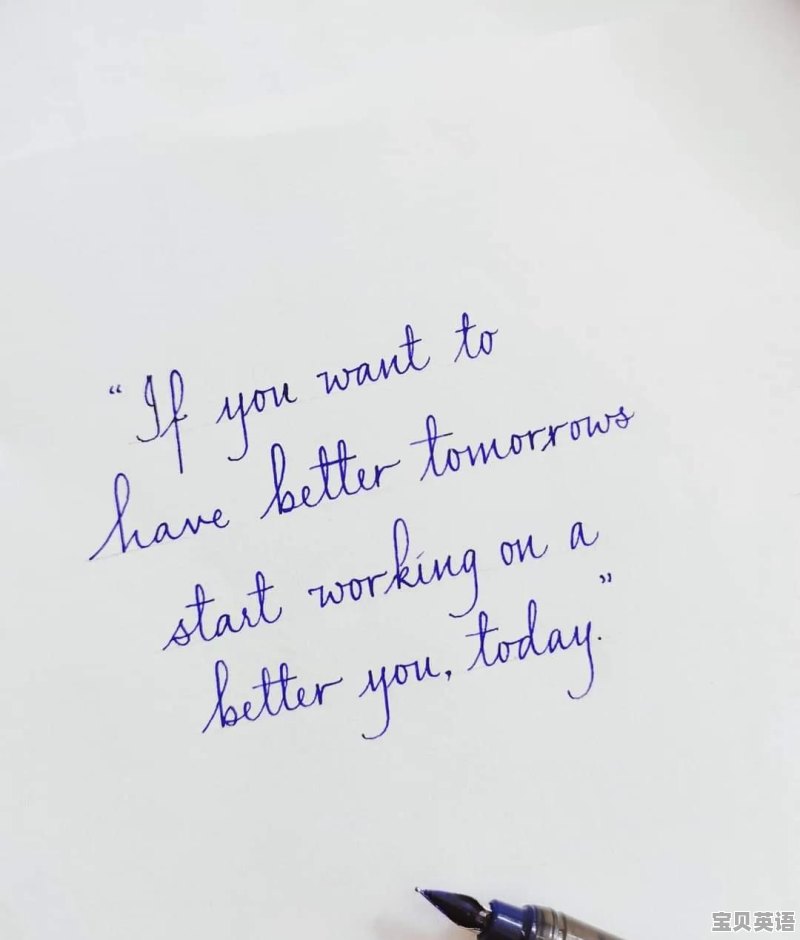 “If you want to
have better tomorrows
start working on a
better you, today.”
宝贝英语